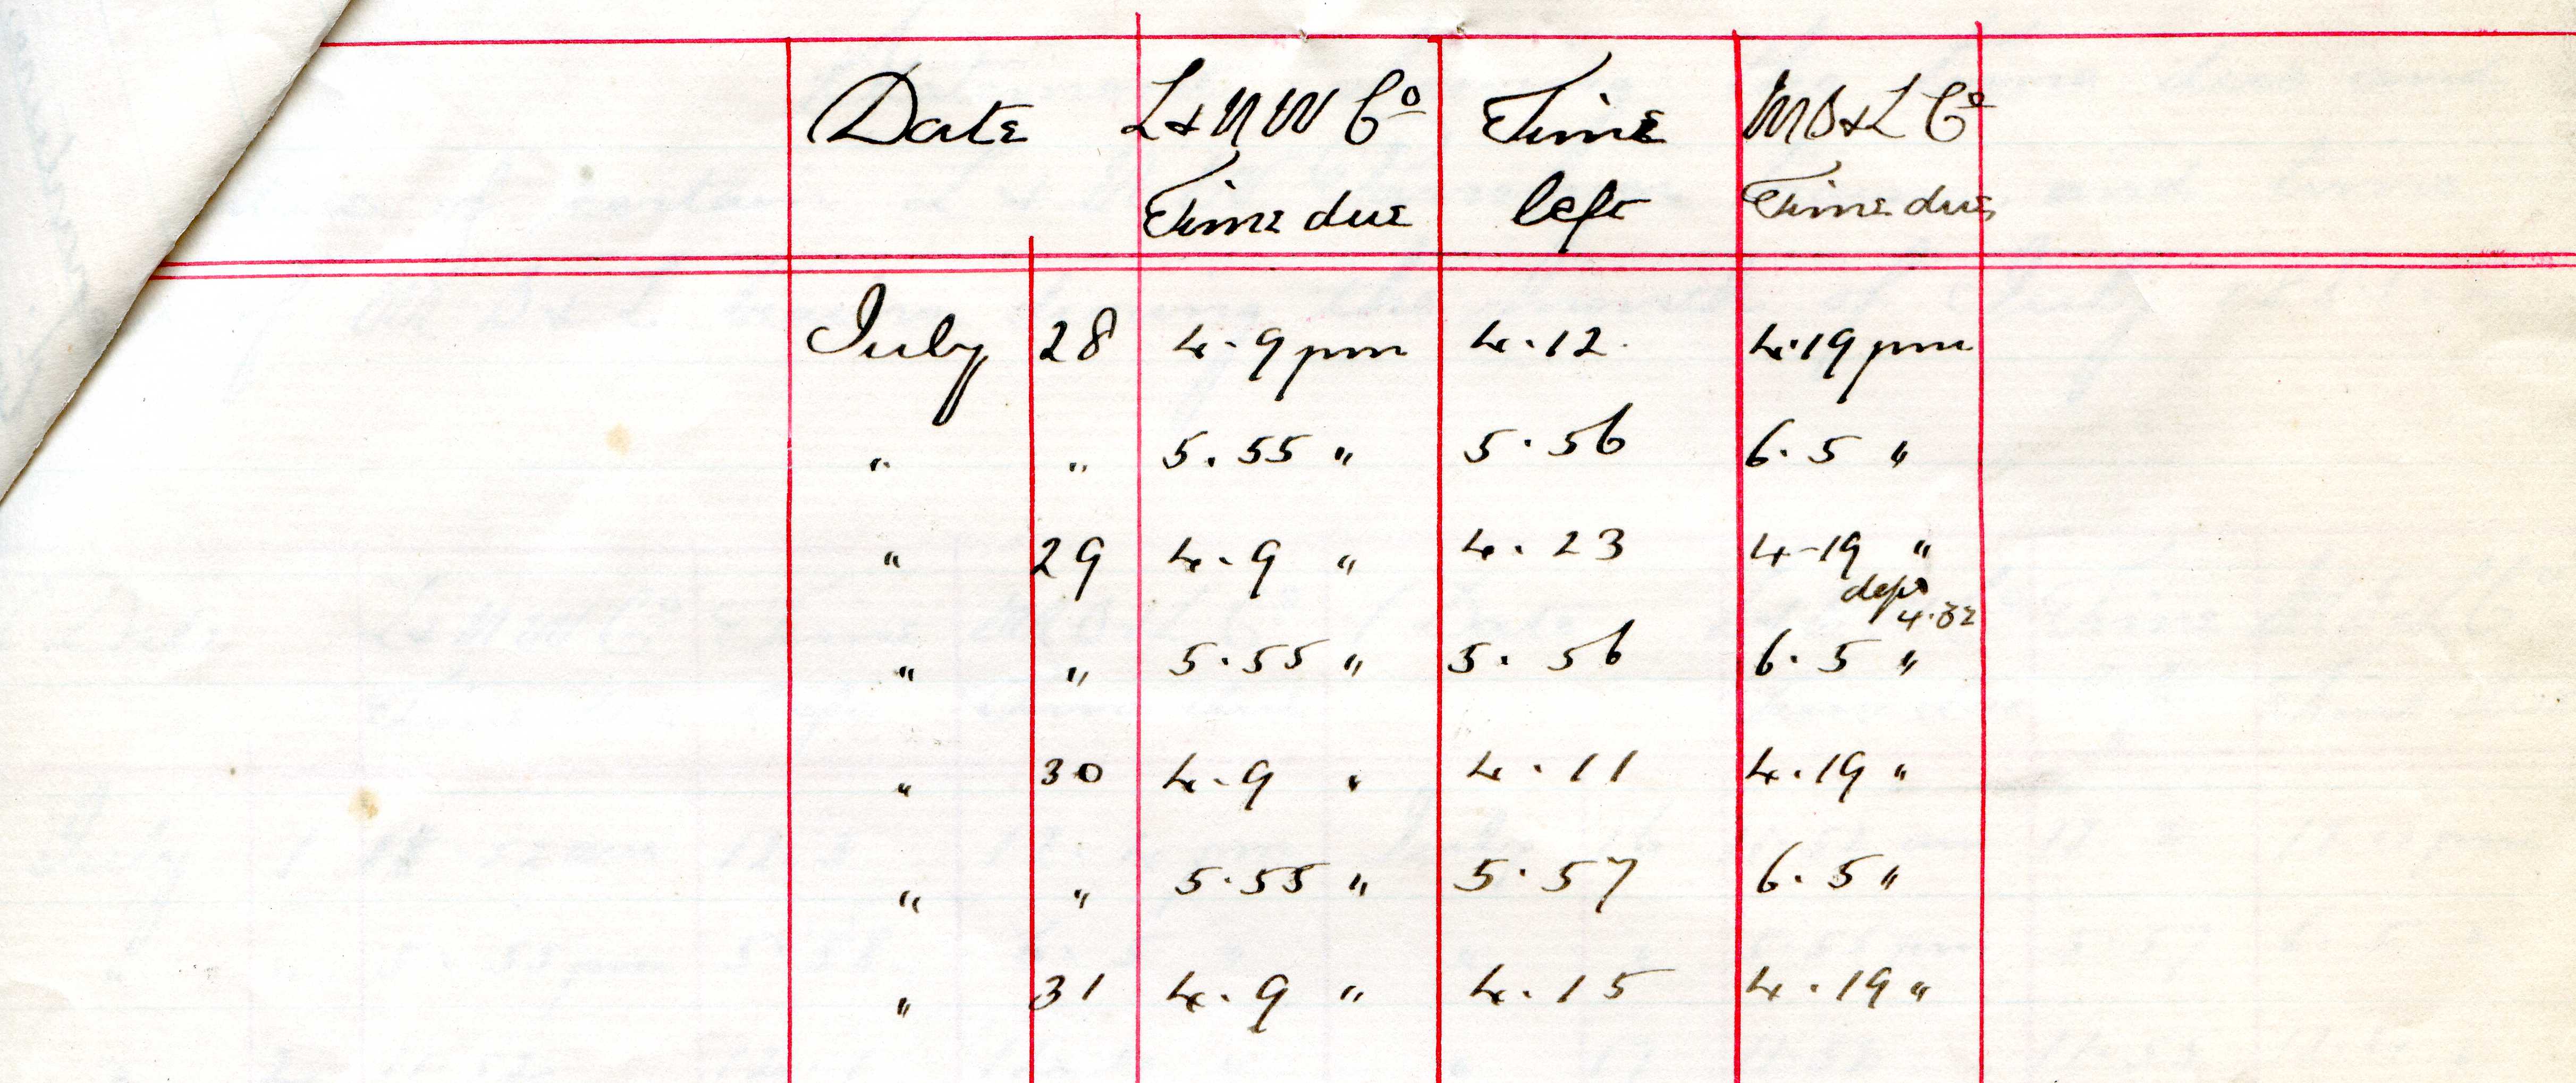 Date L & N W Co Time M S & L Co
Time due left Time due
July 28 4.9 pm 4.12. 4.19 pm
" " 5.55 " 5.56 6.5 "
" 29 4.9 " 4.23 4-19 "
dep
4.32
" " 5.55 " 5.56 6.5 "
" 30 4.9 " 4.11 4.19 "
" " 5.55 " 5.57 6.5 "
" 31 4.9 " 4.15 4.19 "